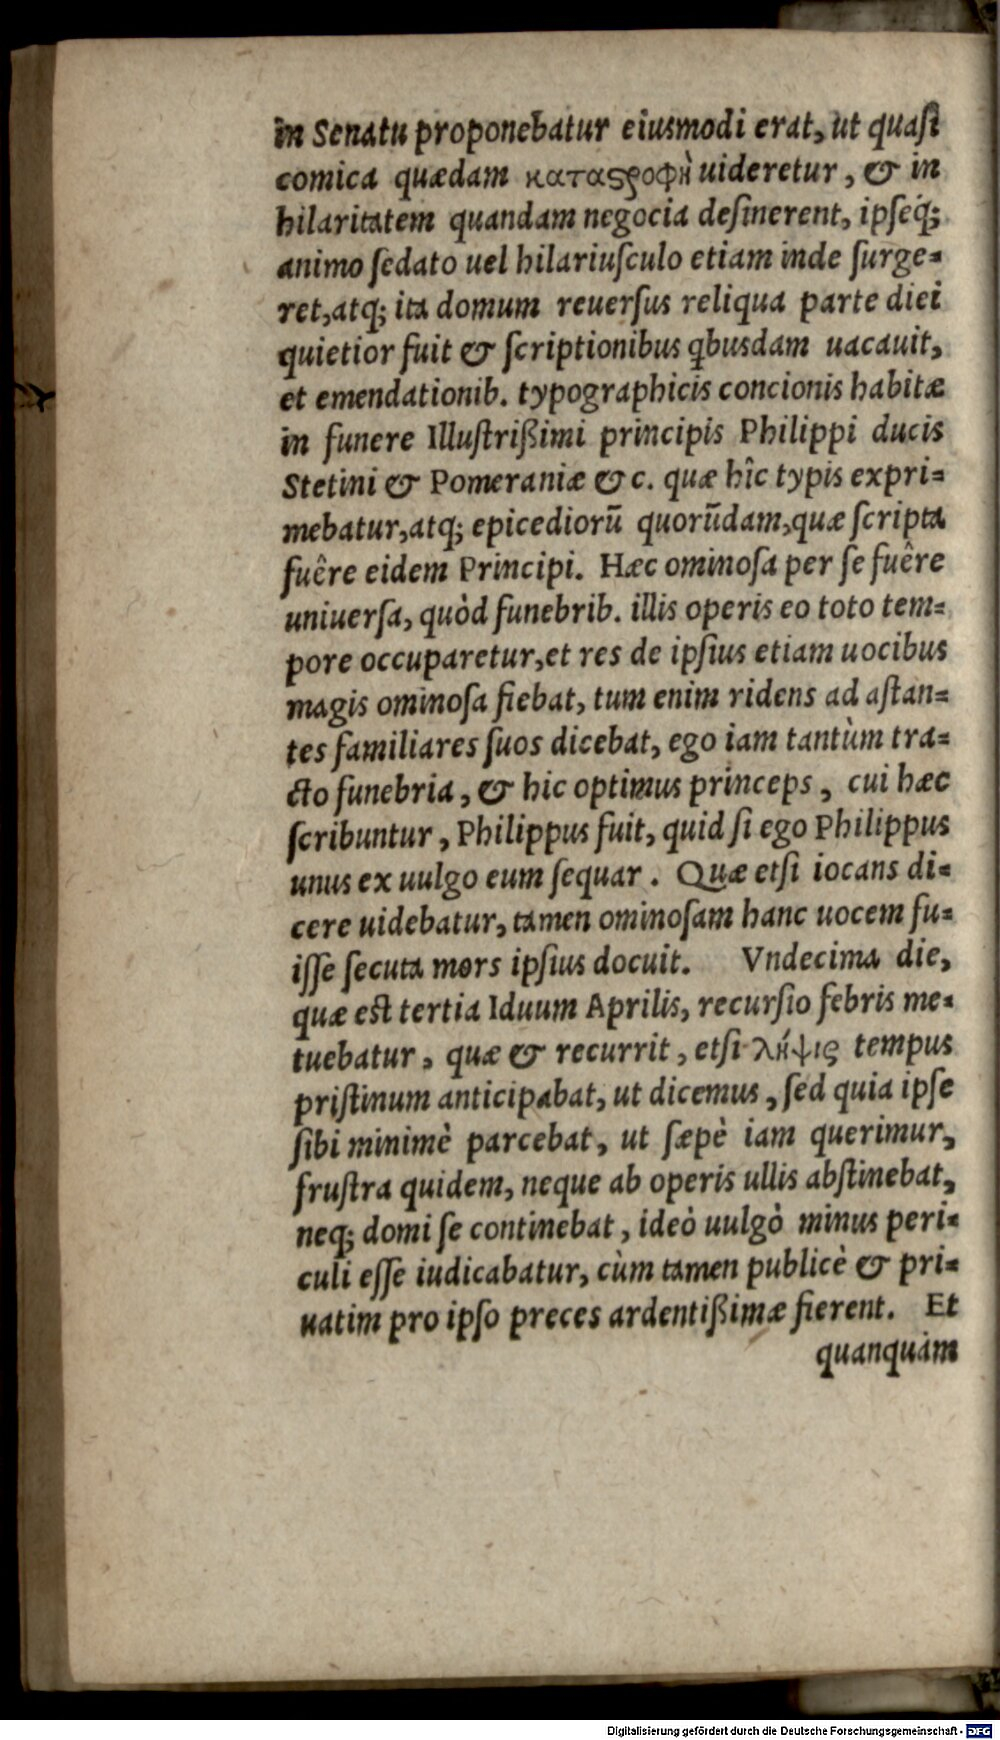 in Senatu proponebatur eiusmodi erat, ut quasi
comica quædam καταςροφὴ uideretur, & in
hilaritatem quandam negocia desinerent, ipseq́;
animo sedato uel hilariusculo etiam inde surge=
ret, atq; ita domum reuersus reliqua parte diei
quietior fuit & scriptionibus qbusdam uacauit,
et emendationib. typographicis concionis habitæ
in funere Illustrißimi principis Philippi ducis
Stetini & Pomeraniæ &c. quæ hîc typis expri=
mebatur, atq; epicediorũ quorũdam, quæ scripta
fuêre eidem Principi. Hæc ominosa per se fuêre
uniuersa, quòd funebrib. illis operis eo toto tem=
pore occuparetur, et res de ipsius etiam uocibus
magis ominosa fiebat, tum enim ridens ad astan=
tes familiares suos dicebat, ego iam tantùm tra=
cto funebria, & hic optimus princeps, cui hæc
scribuntur, Philippus fuit, quid si ego Philippus
unus ex uulgo eum sequar. Quæ etsi iocans di=
cere uidebatur, tamen ominosam hanc uocem fu=
isse secuta mors ipsius docuit. Vndecima die,
quæ est tertia Iduum Aprilis, recursio febris me=
tuebatur, quæ & recurrit, etsi λήψις tempus
pristinum anticipabat, ut dicemus, sed quia ipse
sibi minimè parcebat, ut sæpè iam querimur,
frustra quidem, neque ab operis ullis abstinebat,
neq; domi se continebat, ideò uulgò minus peri=
culi esse iudicabatur, cùm tamen publicè & pri=
uatim pro ipso preces ardentißimæ fierent. Et
quanquàm
Digitalisierung gefördert durch die Deutsche Forschungsgemeinschaft - DFG